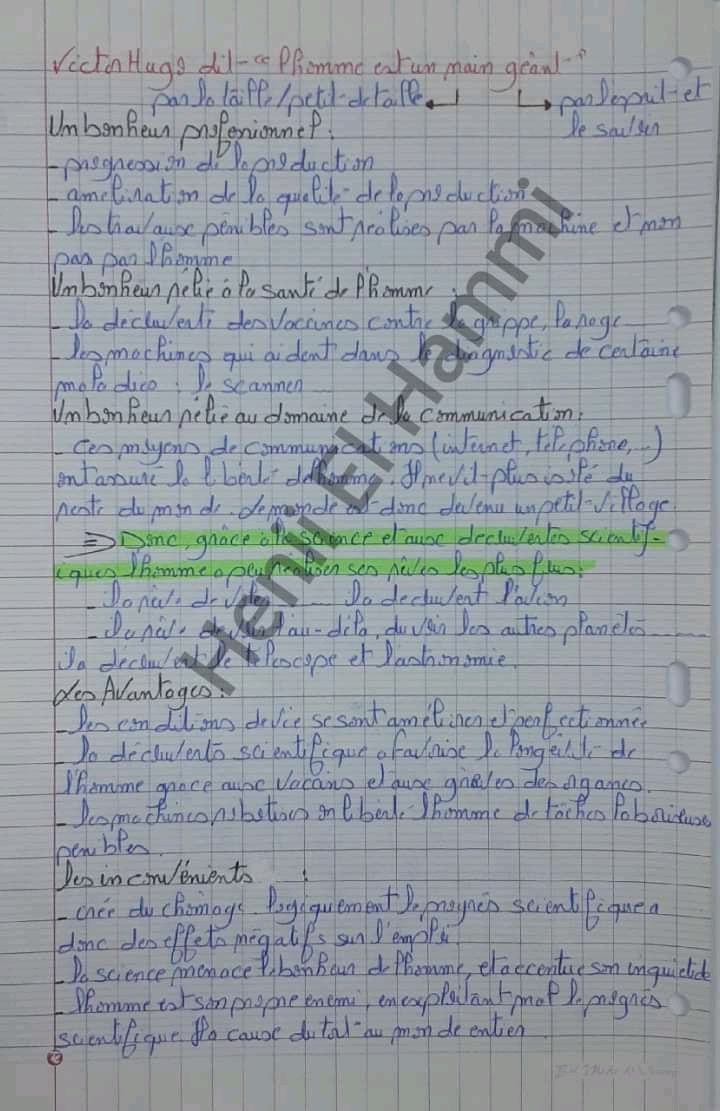 Victor Hugo dit "l'homme est un nain géant"
par la taille/petit de taille ↲ ↳ par l'esprit et
le savoir
Un bonheur professionnel :
- progression de la production
- amélioration de la qualité de la production
- les travaux pénibles sont réalisés par la machine et non
pas par l'homme
Un bonheur rélié à la santé de l'homme :
- la découverte des vaccines contre la grippe, la rage
- les machines qui aident dans le diagnostic de certaine
maladies : le scanner
Un bonheur rélié au domaine de la communication :
- Ces moyens de communications (internet, téléphone, ...)
ont assuré la liberté de l'homme. Il ne vit plus isolé du
reste du monde. Le monde est donc devenu un petit village.
⇒ Donc, grâce à la science et aux découvertes scientif-
iques l'homme a pu réaliser ses rêves les plus
- la rêve de voler la découvert l'avion
- la rêve de voir l'au-délà, du voir les autres planètes
la découvert de télescope et l'astronomie.
Les Avantages :
- les conditions de vie se sont améliorer et perfectionnée
- la découverte scientifique a favorisé la longévité de
l'homme grace aux vaccins et aux greffes des organes.
- les machines robotises on libéré l'homme de tâches laborieuse
penibles.
Les inconvénients :
- crée du chômage. Logiquement le progrès scientifique a
donc des effets négatifs sur l'emploi
- la science menace le bonheur de l'homme, et accentue son inquiétude
- l'homme est son propre enemi, en exploitant mal le progrès
scientifique. Il a cause du tort au monde entier.
Henri El Hammi